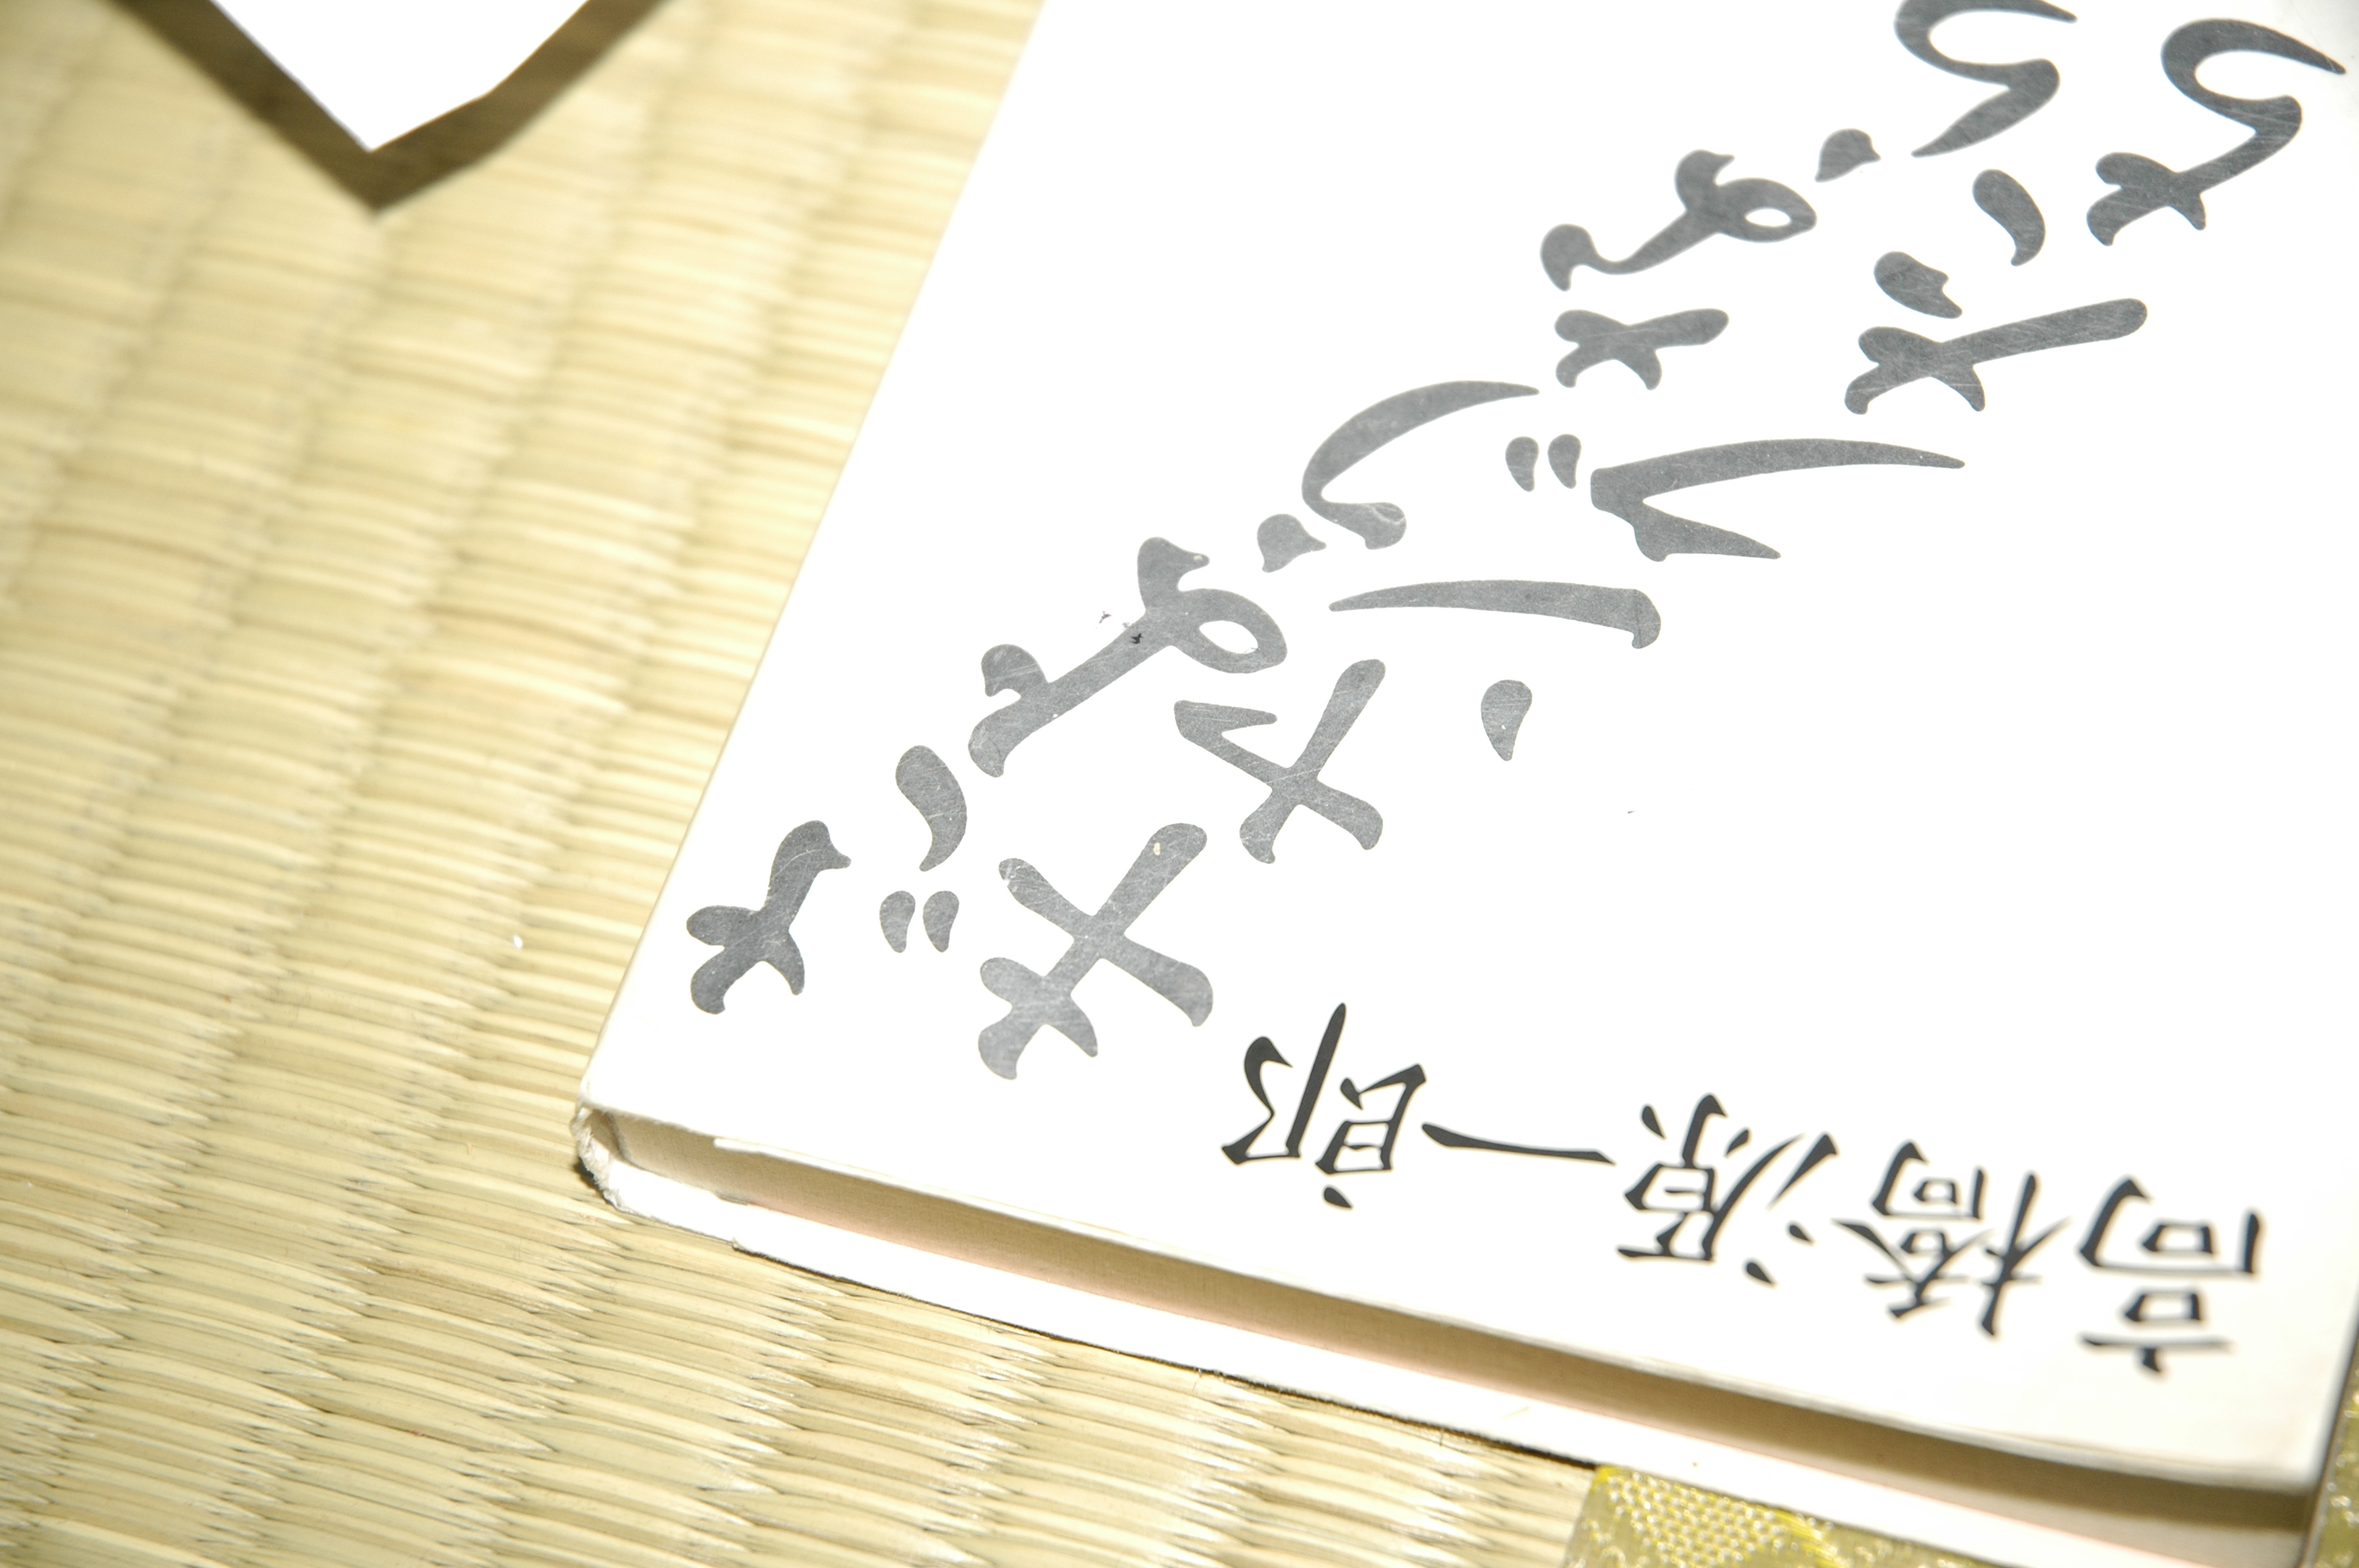 さようなら
ギャングたち
高橋源一郎